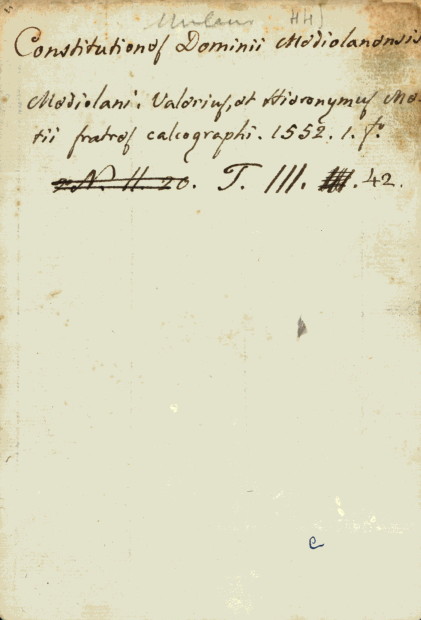 Constitutiones Dominii Mediolanensis
Mediolani. Valerius, et Hieronymus Me-
tii fratres calcographi. 1552. 1. f°.
N. II. 20. T. III. 42.
e